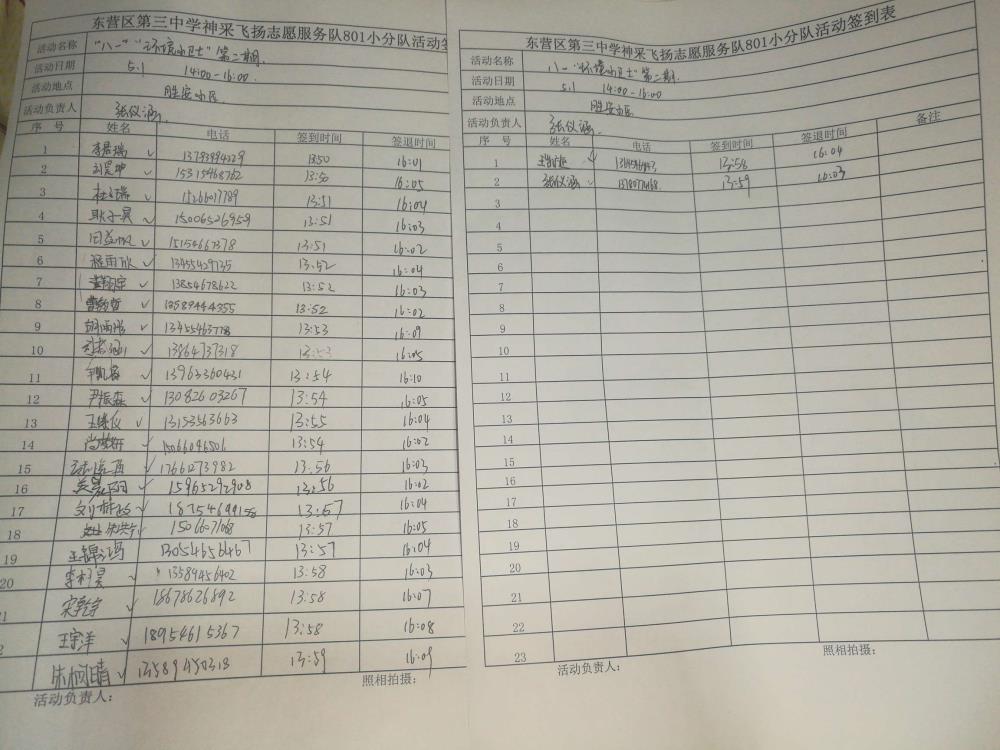 东营区第三中学神采飞扬志愿服务队801小分队活动签
活动名称 "八一""环境小卫士"第二期.
活动日期 5.1 14:00-16:00.
活动地点 胜安小区.
活动负责人 张仪涵.
序号 姓名 电话 签到时间 签退时间
1 李君瑞 ✓ 13793994329 13:50 16:01
2 ✓ 15315968762 13:50 16:05
3 ✓ 15266017789 13:51 16:04
4 耿子昊 ✓ 15006526959 13:51 16:03
5 ✓ 15154667378 13:51 16:02
6 程雨欣 ✓ 13455429735 13:52 16:04
7 ✓ 13854678622 13:52 16:03
8 ✓ 13589444355 13:52 16:02
9 胡雨彤 ✓ 13455463778 13:53 16:09
10 ✓ 13864737318 13:53 16:05
11 13963360431 13:54 16:10
12 尹振森 ✓ 13082603267 13:54 16:05
13 ✓ 13153563663 13:55 16:04
14 ✓ 15066096506 13:54 16:02
15 ✓ 17661273982 13:56 16:03
16 ✓ 15965292908 13:56 16:02
17 ✓ 13:57 16:04
18 ✓ 13:57 16:05
19 王锦鸿 13054656467 13:57 16:04
20 李柯昊 ✓ 13589456402 13:58 16:03
1 宋乾宇 ✓ 18678626892 13:58 16:07
2 王宇洋 ✓ 18954615367 13:58 16:08
朱柯晴 ✓ 13589450318 13:59 16:09
活动负责人： 照相拍摄：
东营区第三中学神采飞扬志愿服务队801小分队活动签到表
活动名称 八一"环境小卫士"第二期.
活动日期 5.1 14:00-16:00
活动地点 胜安小区
活动负责人 张仪涵.
序号 姓名 电话 签到时间 签退时间 备注
1 ✓ 13:58 16:04
2 张仪涵 ✓ 13:59 16:03
3
4
5
6
7
8
9
10
11
12
13
14
15
16
17
18
19
20
21
22
23
活动负责人： 照相拍摄：